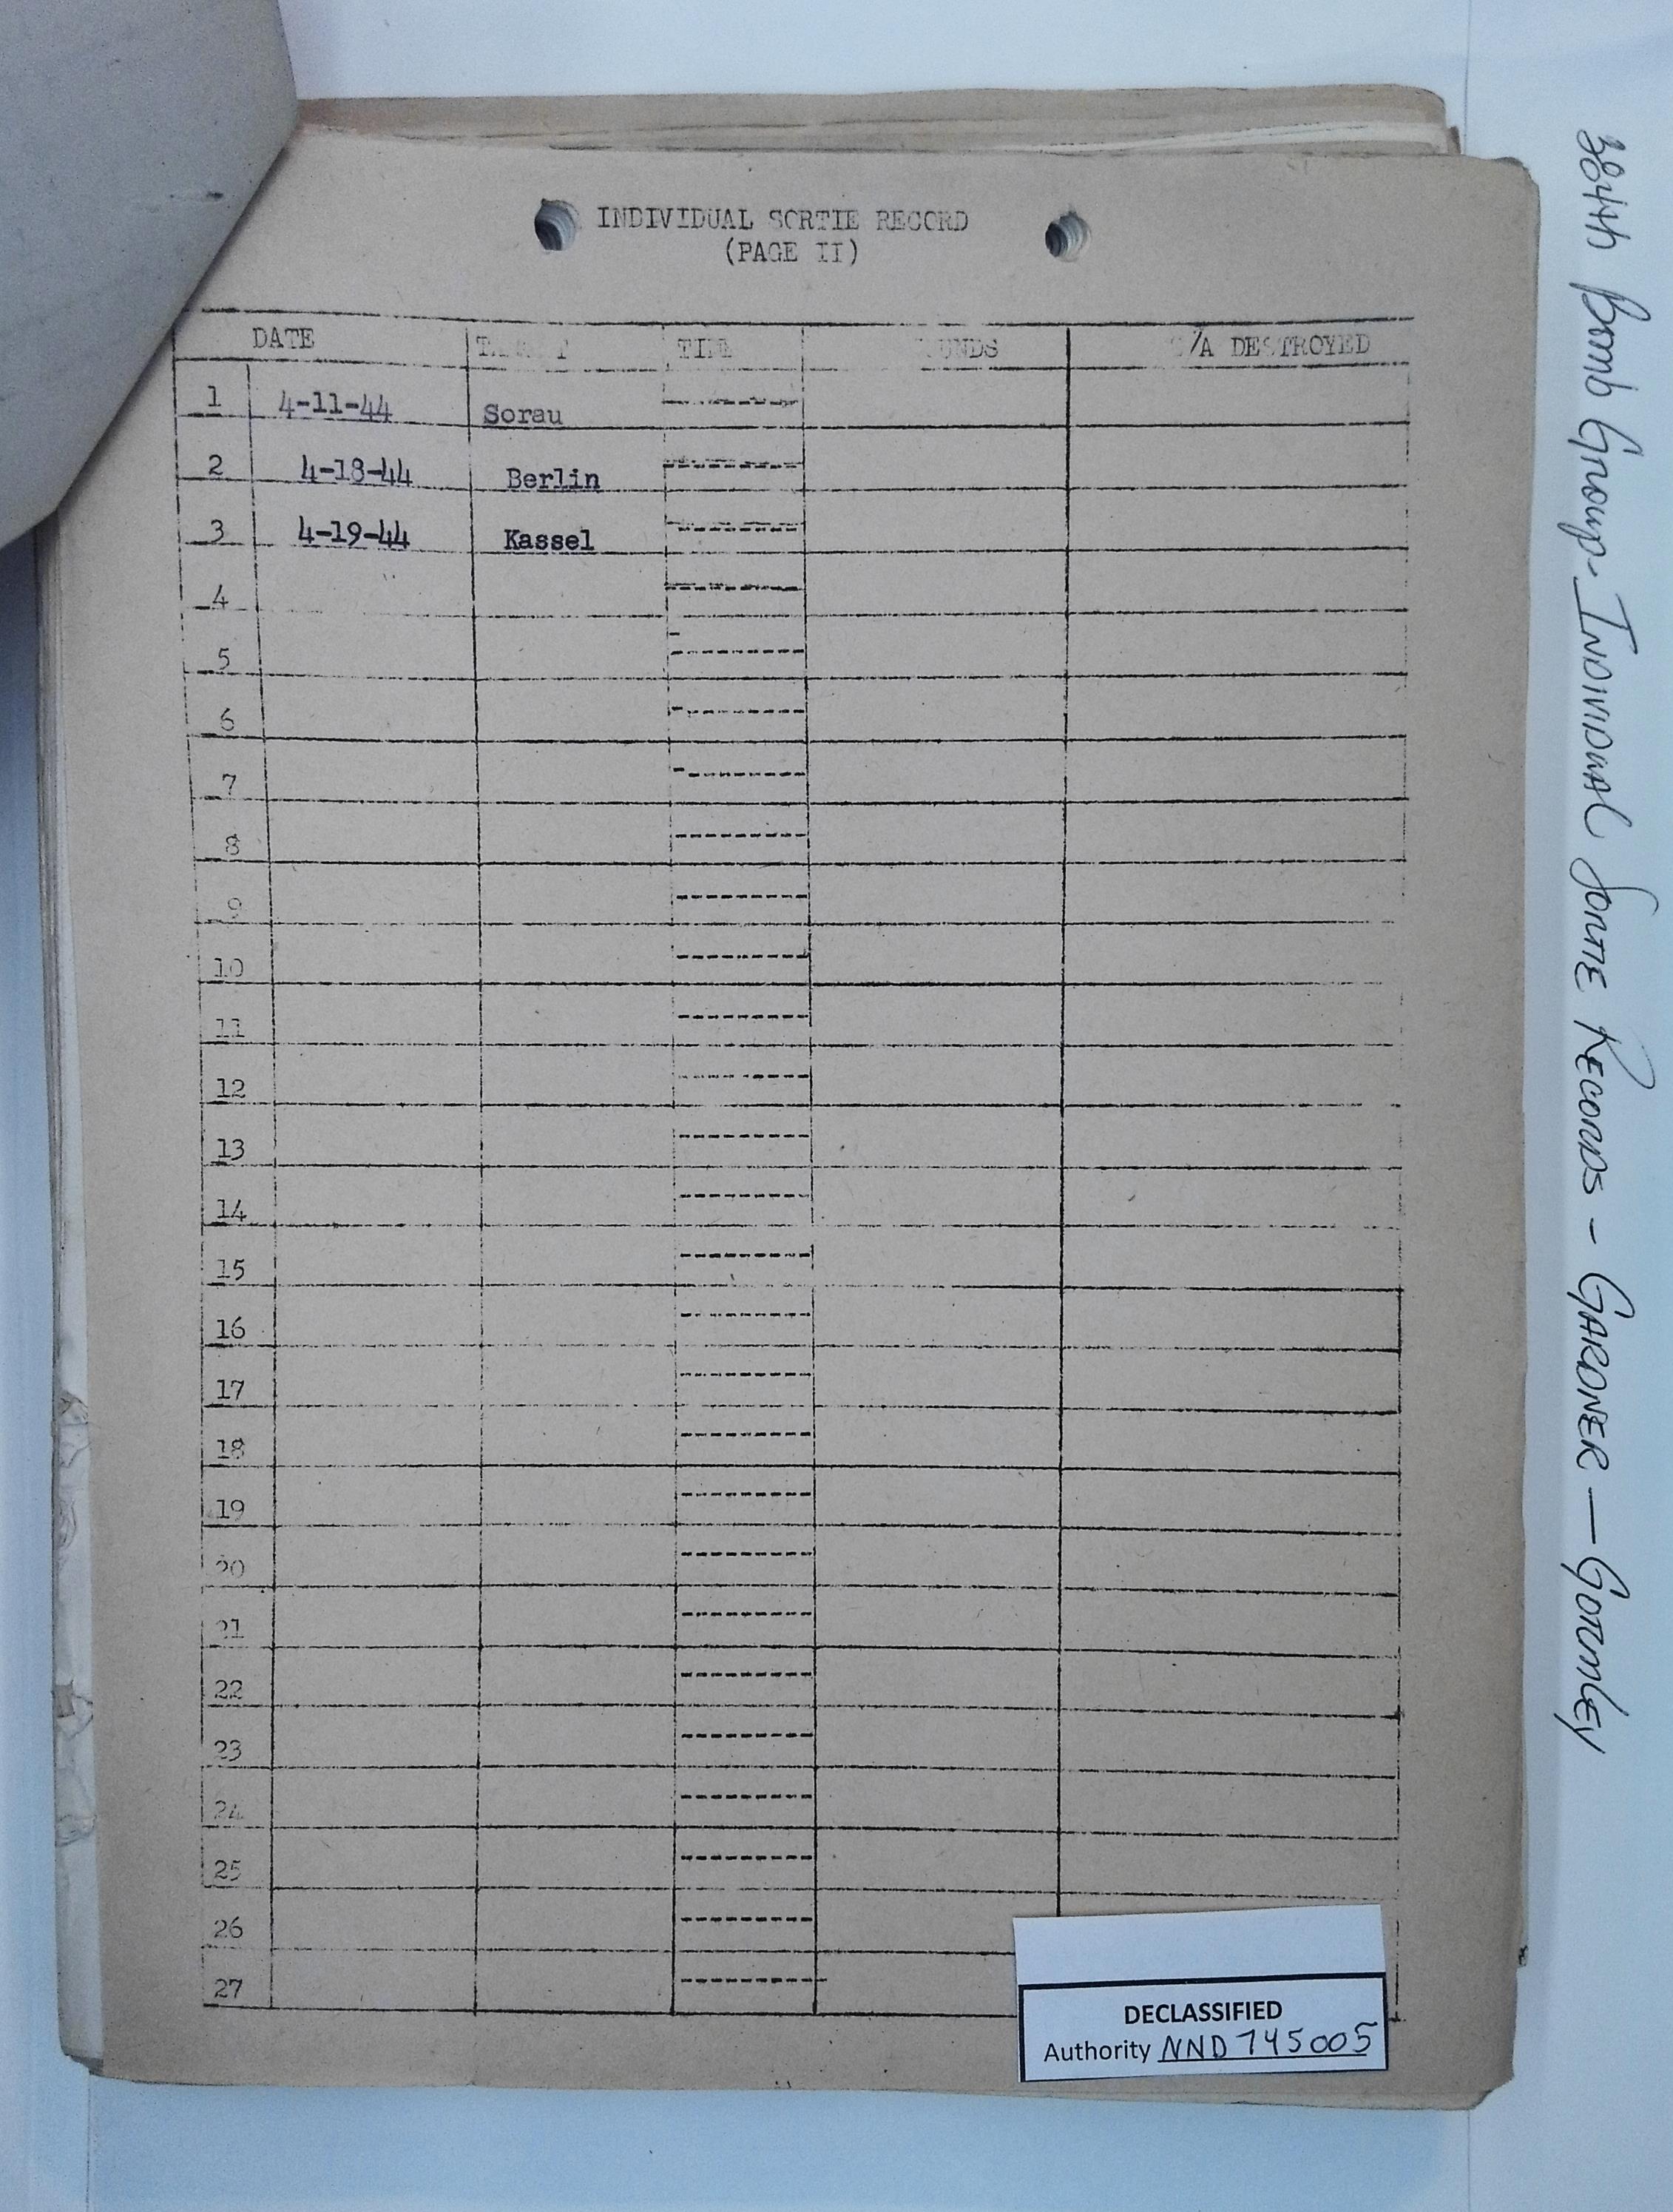 INDIVIDUAL SORTIE RECORD
(PAGE II)
DATE DESTROYED
1 4-11-44 Sorau
2 4-18-44 Berlin
3 4-19-44 Kassel
4
5
6
7
8
9
10
11
12
13
14
15
16
17
18
19
20
21
22
23
24
25
26
27
DECLASSIFIED
Authority NND 745005
384th Bomb Group - Individual Sortie Records - GARDNER — GORMLEY